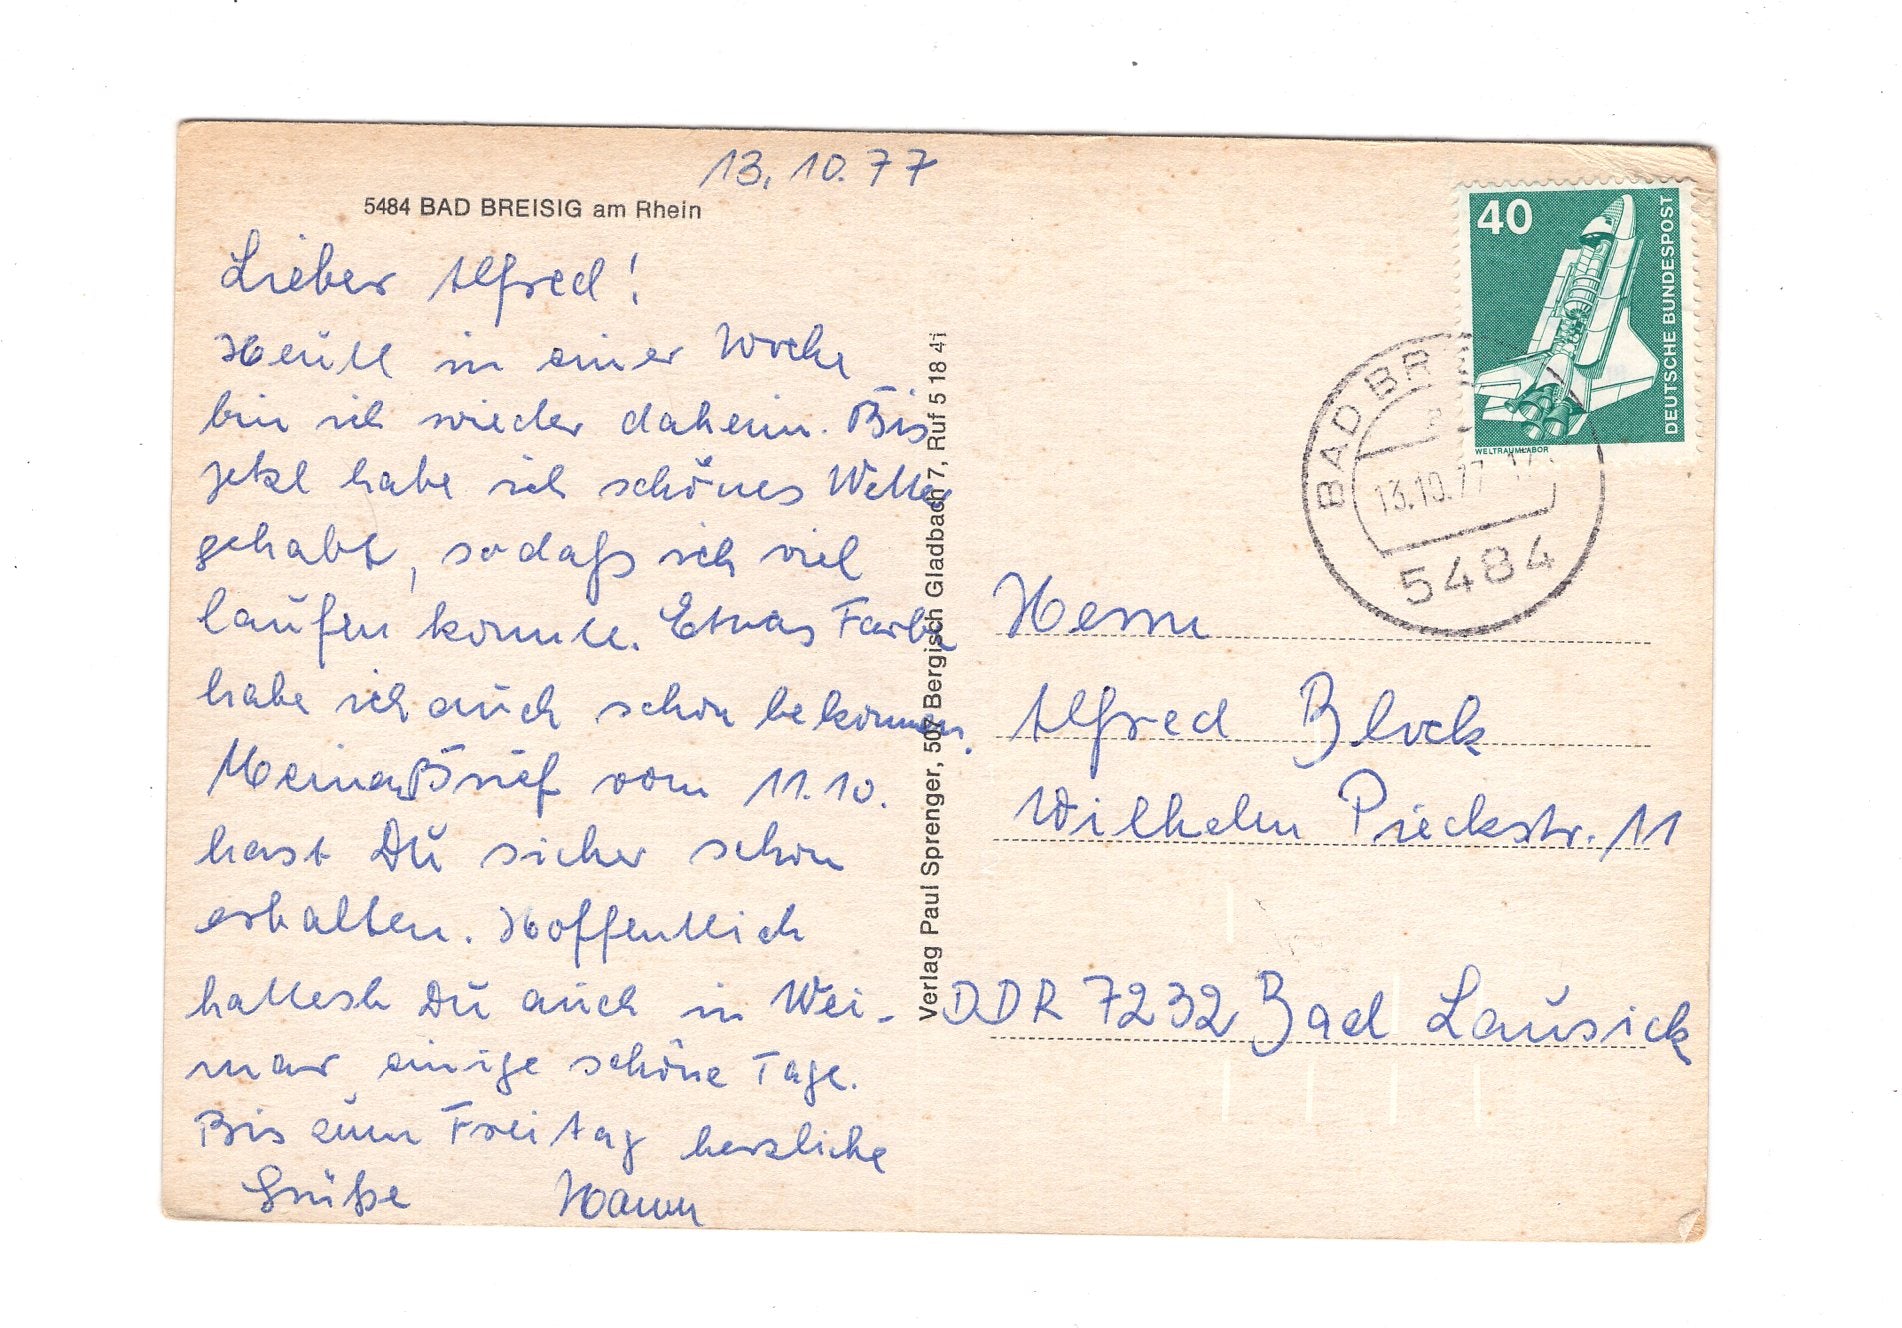 13. 10. 77
5484 BAD BREISIG am Rhein
Lieber Alfred!
Heute in einer Woche
bin ich wieder daheim. Bis
jetzt habe ich schönes Wetter
gehabt, sodaß ich viel
laufen konnte. Etwas Farbe
habe ich auch schon bekommen.
Meinen Brief vom 11.10.
hast Du sicher schon
erhalten. Hoffentlich
hattest Du auch in Wei-
mar einige schöne Tage.
Bis zum Freitag herzliche
Grüße
Verlag Paul Sprenger, 507 Bergisch Gladbach 7, Ruf 5 18 41
40
DEUTSCHE BUNDESPOST
WELTRAUMLABOR
BAD BR
13.10.77
5484
Herrn
Alfred Block
Wilhelm Pieckstr. 11
DDR 7232 Bad Lausick